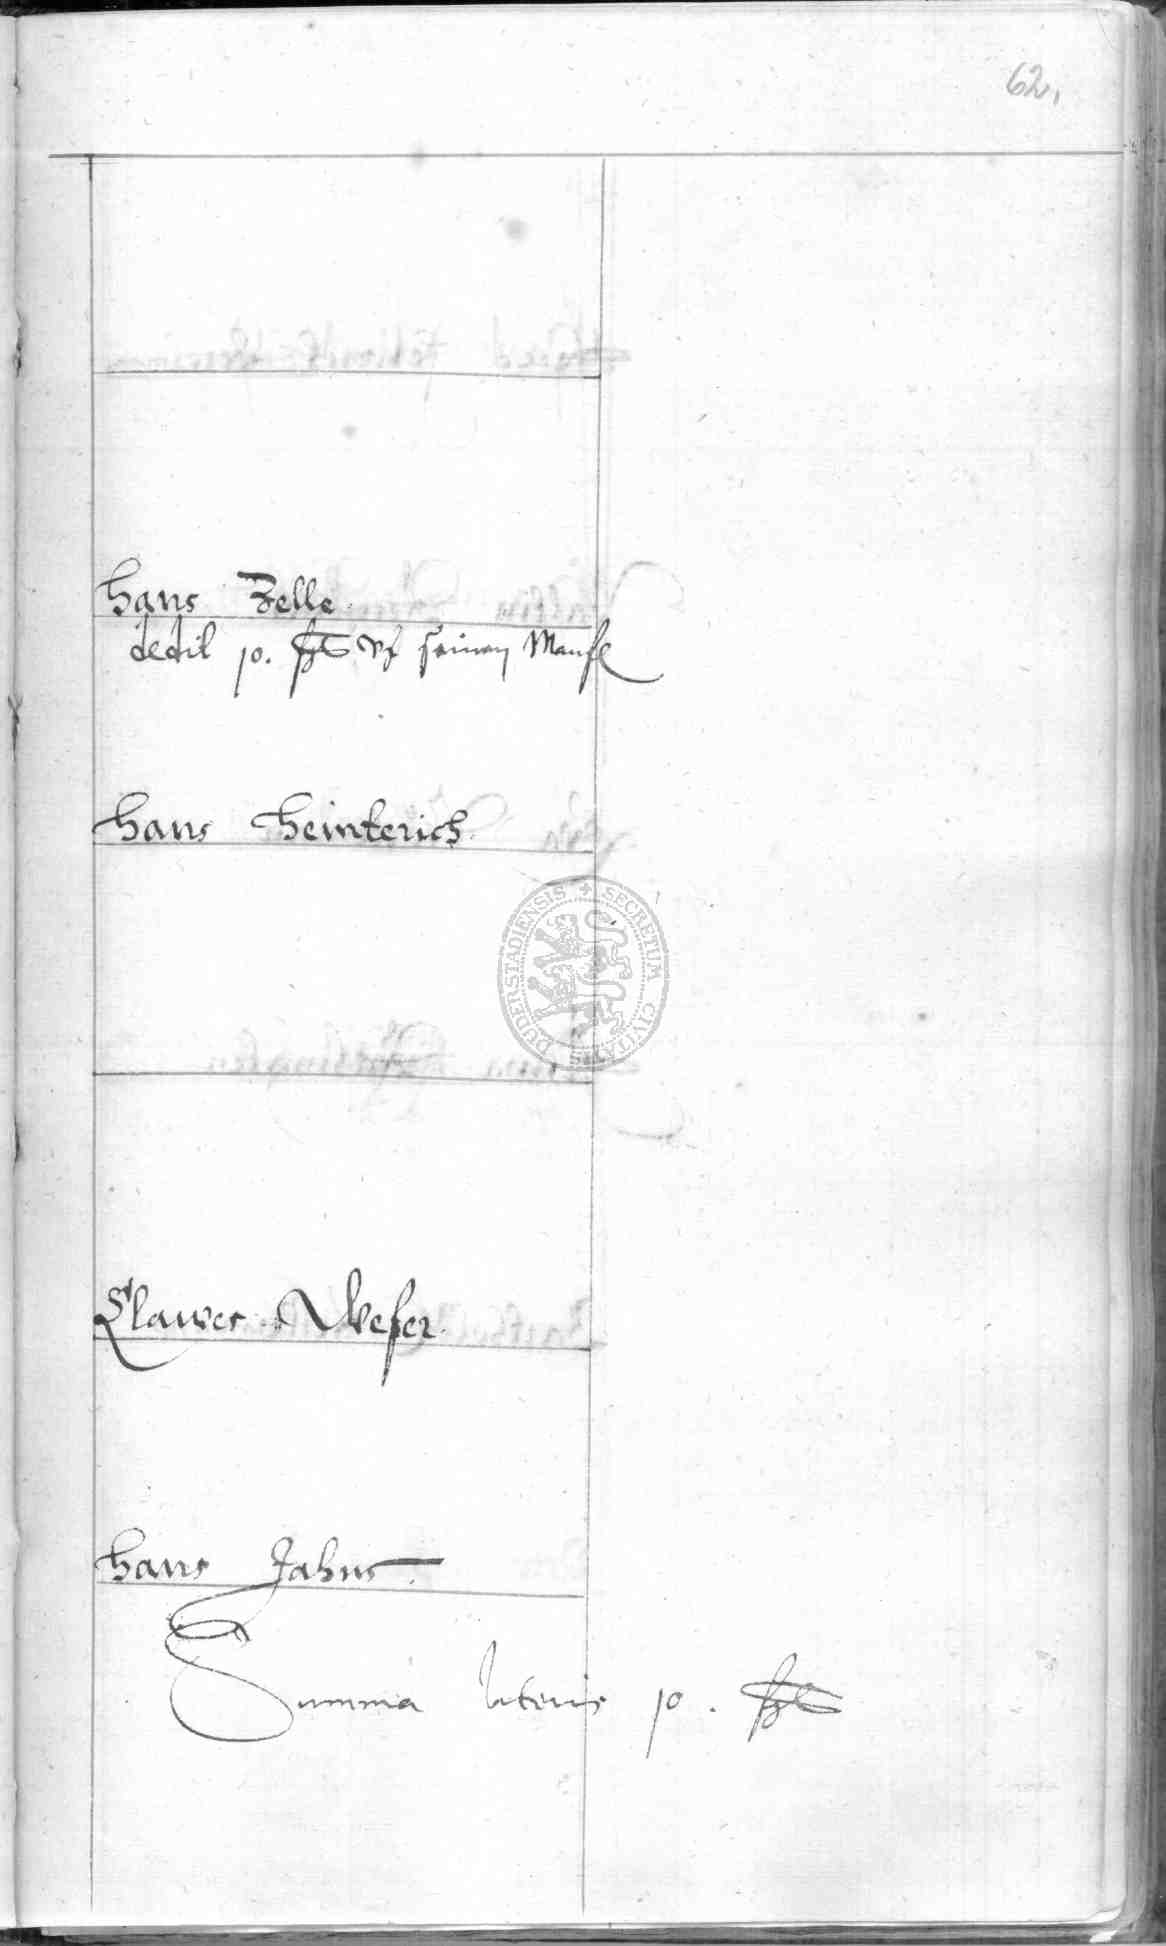 62.
Hans Zelle
dedit 10. ßl vf seinen
Hans Heinterich
DUDERSTADIENSIS + SECRETUM CIVITATIS
Clawes Weser
Hans Jahns
Summa lateris 10. ßl